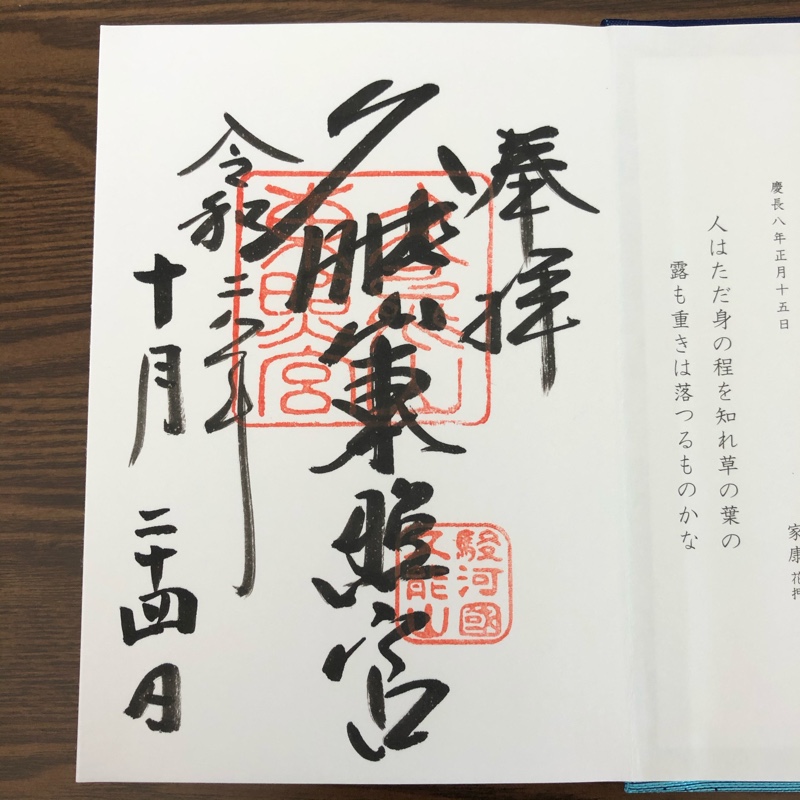 慶長八年正月十五日
人はただ身の程を知れ草の葉の
露も重きは落つるものかな
家康 花押
奉拝
久能山東照宮
駿河國
久能山
令和二年
十月二十四日